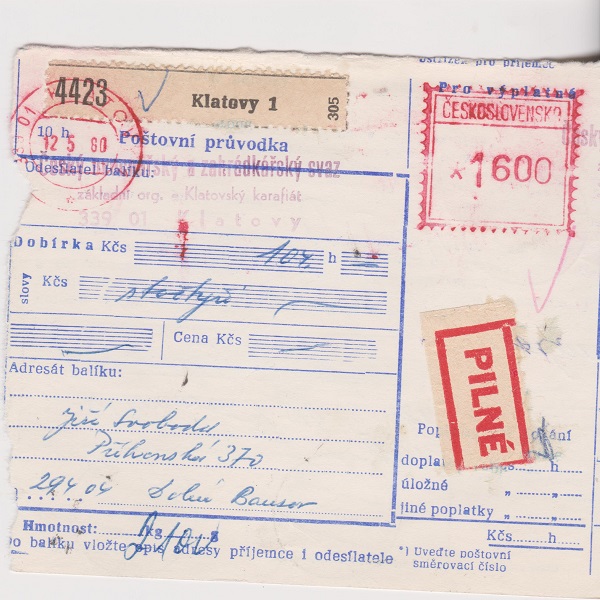 Ústřižek pro příjemce
4423
Klatovy 1
305
Pro výplatné
10 h
12 5 80
Poštovní průvodka
Odesílatel balíku:
a zahrádkářský svaz
základní org. - Klatovský karafiát
339 01 Klatovy
ČESKOSLOVENSKO
1600
Dobírka Kčs 104 h
slovy Kčs stočtyři
Cena Kčs
Adresát balíku:
Jiří Svoboda
370
294 04 Dolní Bousov
PILNÉ
doplat Kčs h
úložné " "
jiné poplatky " "
Kčs h
Hmotnost: kg g
Do balíku vložte opis adresy příjemce i odesílatele
*) Uveďte poštovní
směrovací číslo